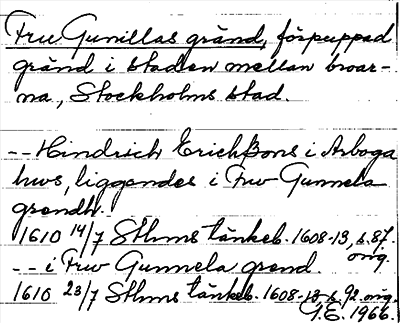 Fru Gunillas gränd, förpuppad
gränd i staden mellan broar-
na, Stockholms stad.
-- Hindrich Erichßons i Arboga
hws, liggendes i Frw Gunnela
grendh.
1610 14/7 Sthms tänkeb. 1608-13, s. 87.
orig.
-- i Frw Gunnela grend.
1610 23/7 Sthms tänkeb. 1608-13 s. 92. orig.
G.E. 1966.